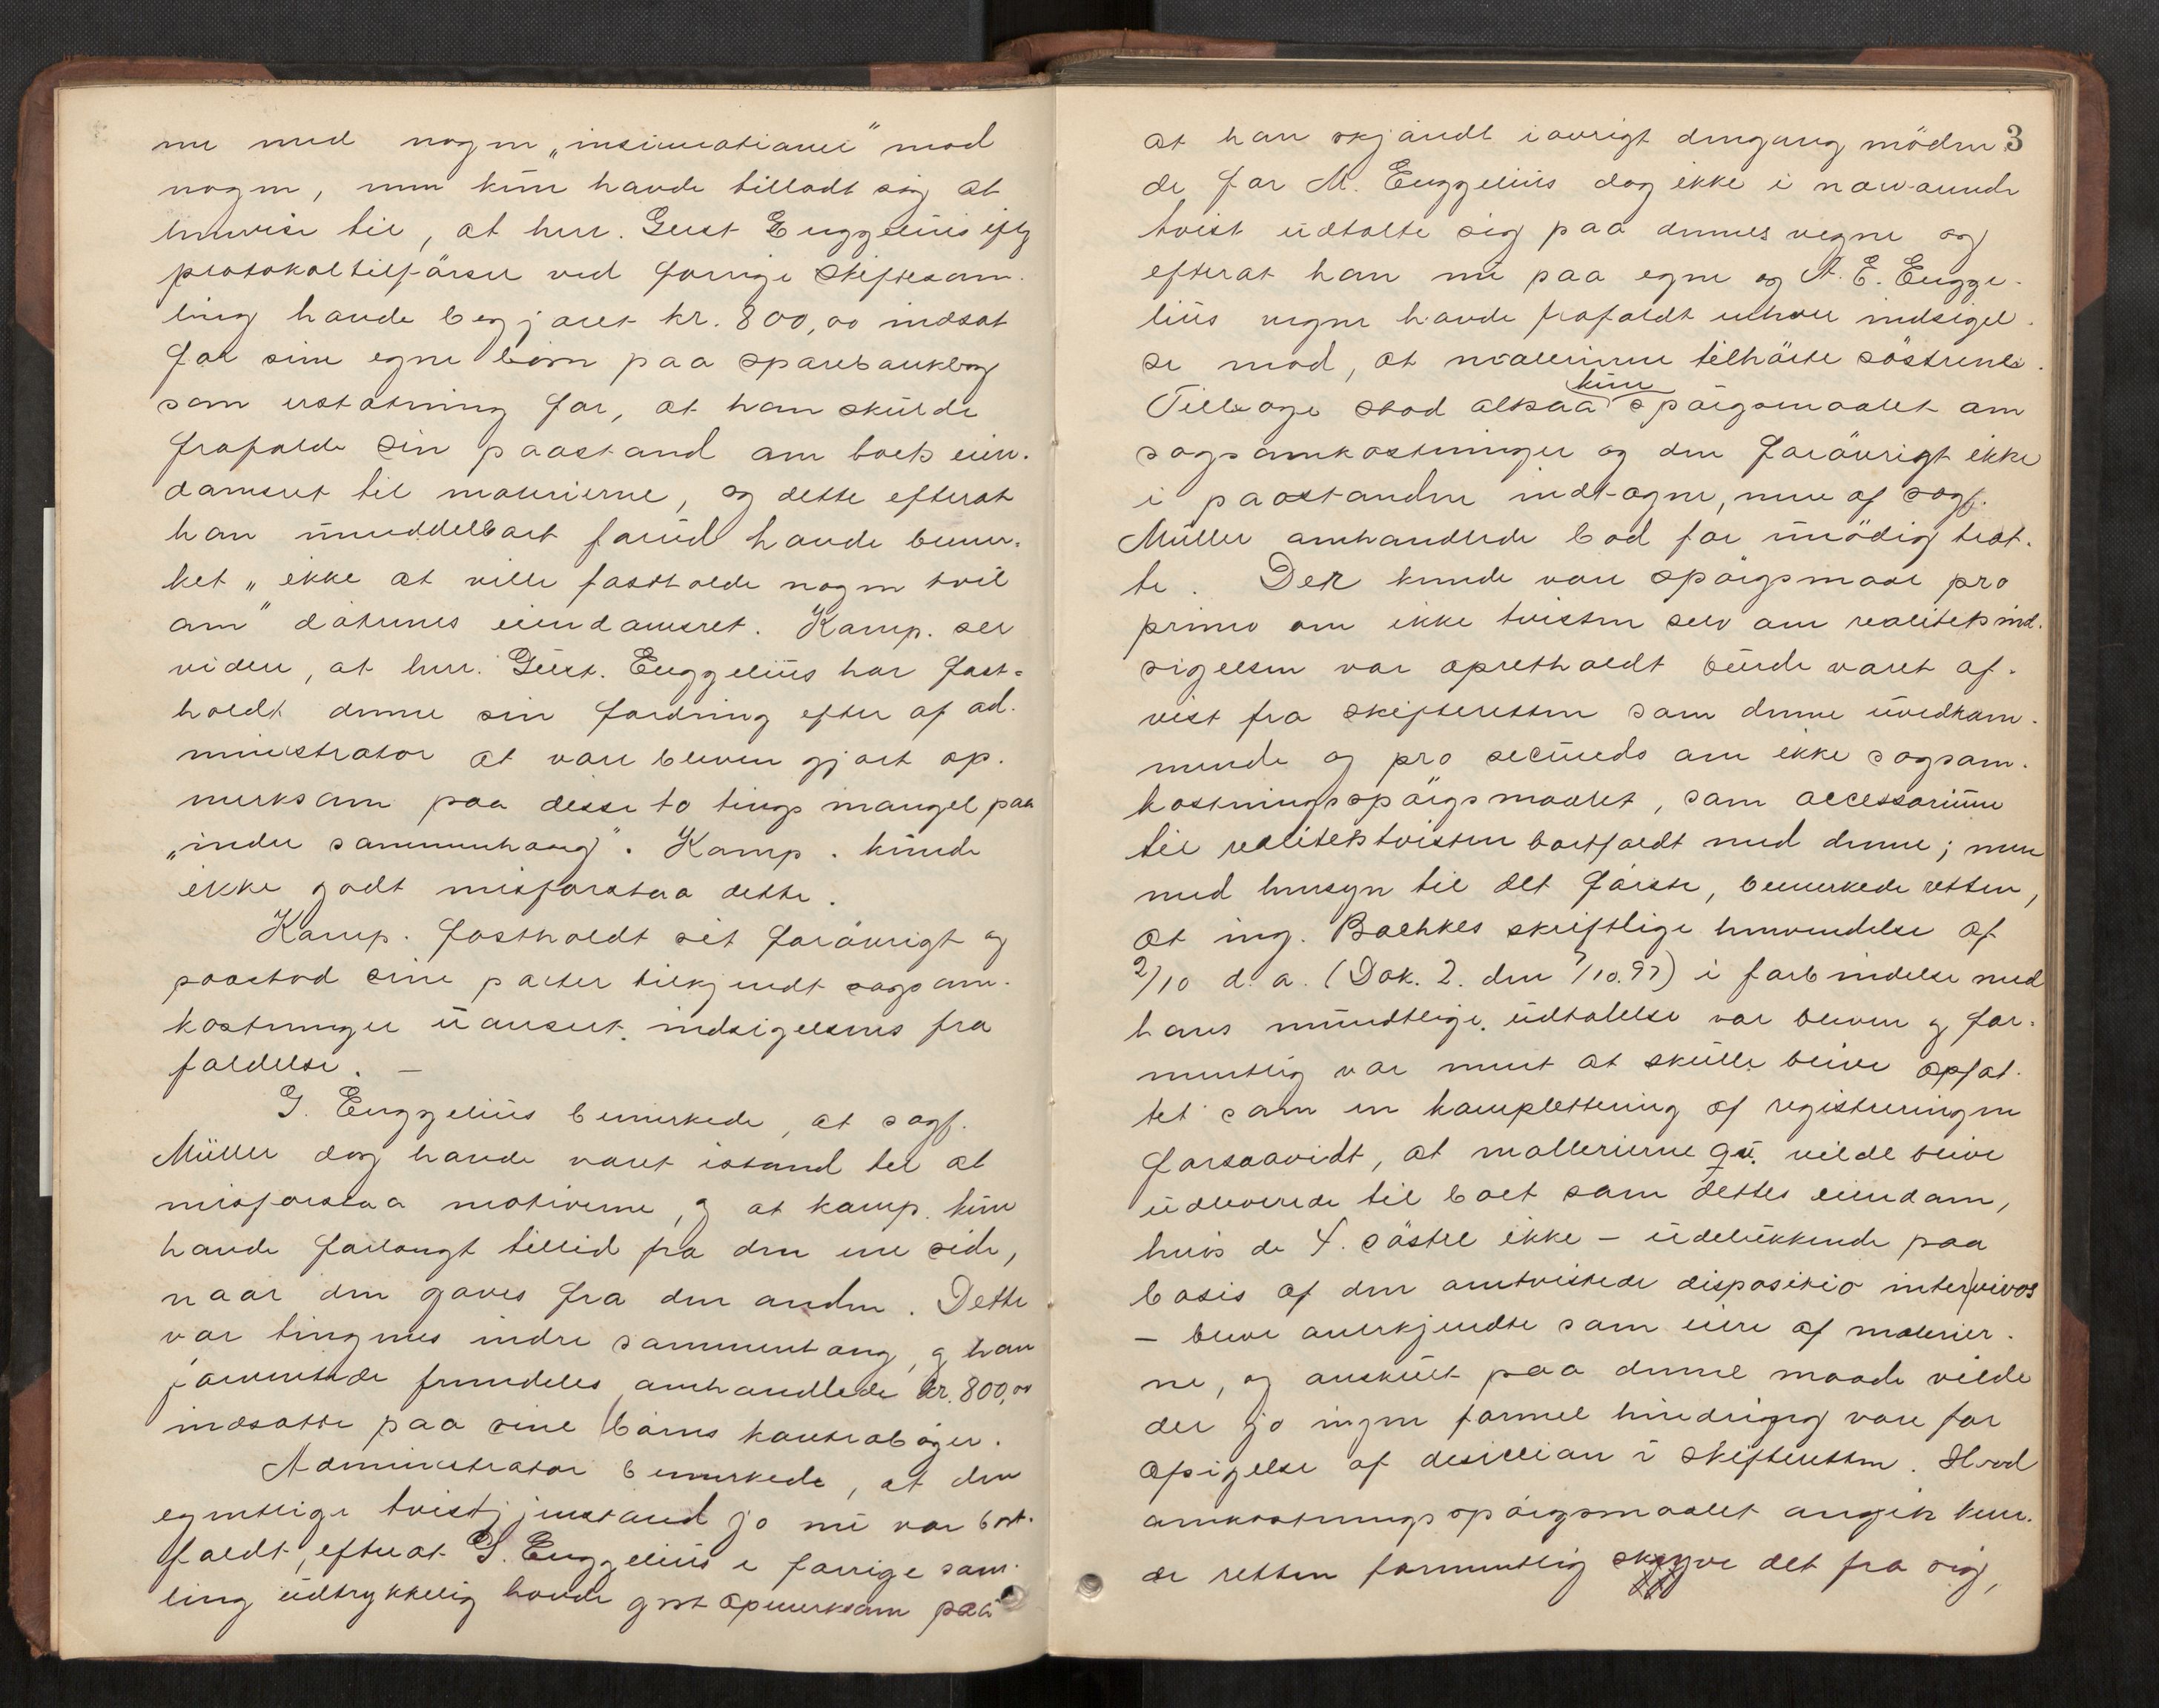 me med nogen „insinuationer" mod
nogen, men kun havde tilladt sig at
henvise til, at herr. Gust Enggelius iflg
protokoltilförsel ved forrige skiftesam-
ling havde begjæret kr. 800,00 indsat
for sine egne börn paa sparebankbog
som erstatning for, at han skulde
frafalde sin paastand om boets eien-
domsret til malerierne, og dette efterat
han umiddelbart forud havde bemer-
ket „ikke at ville fastholde nogen tvil
om" döttrenes eiendomsret. Komp. ser
videre, at herr. Gust. Enggelius har fast-
holdt denne sin fordring efter af ad-
ministrator at være bleven gjort op-
merksom paa disse to tings mangel paa
„indre sammenhæng". Komp. kunde
ikke godt misforstaa dette.
Komp. fastholdt sit forövrigt og
paastod sine parter tilkjendt sagsom-
kostninger uanseet indsigelsens fra
faldelse. —
G. Enggelius bemerkede, at sagf.
Müller dog havde været istand til at
misforstaa motiverne, og at komp. kun
havde forlangt tillid fra den ene side,
naar den gaves fra den anden. Dette
var tingenes indre sammenhæng, og han
forventede fremdeles omhandlede kr. 800,00
indsatte paa sine börns kontraböger.
Administrator bemerkede, at den
egentlige tvistgjenstand jo nu var bort-
faldt, efterat G. Enggelius i forrige sam-
ling udtrykkelig havde gjort opmerksom paa
3
at han skjöndt iövrigt dengang möden-
de for M. Enggelius dog ikke i nærværende
tvist udtalte sig paa dennes vegne og
efterat han nu paa egne og A. E. Engge-
lius vegne havde frafaldt enhver indsigel-
se mod, at malerierne tilhörte söstrene.
kun
Tilbage stod altsaa spörgsmaalet om
sagsomkostninger og den forövrigt ikke
i paastanden indtagne, men af sagf.
Müller omhandlede bod for unödig træt-
te. Der kunde være spörgsmaal pro
primo om ikke tvisten selv om realitetsind-
sigelsen var opretholdt burde været af-
vist fra skifteretten som denne uvedkom-
mende og pro secundo om ikke sagsom-
kostningsspörgsmaalet, som accessorium
til realitetstvisten bortfaldt med denne; men
med hensyn til det förste, bemerkede retten,
at ing. Bachkes skriftlige henvendelse af
2/10 d. a. (Dok. 2. den 7/10.97) i forbindelse med
hans mundtlige udtalelse var bleven og for-
mentlig var ment at skulle blive opfat-
tet som en komplettering af registreringen
forsaavidt, at mallerierne qv. vilde blive
udleverede til boet som dettes eiendom,
hvis de 4. söstre ikke – udelukkende paa
basis af den omtvistede dispositio inter vivos
– bleve anerkjendte som eiere af malerier-
ne, og anskuet paa denne maade vilde
der jo ingen formel hindring være for
afsigelse af desicion i skifteretten. Hvad
omkostningsspörgsmaalet angik kun-
de retten formentlig skyve det fra sig,